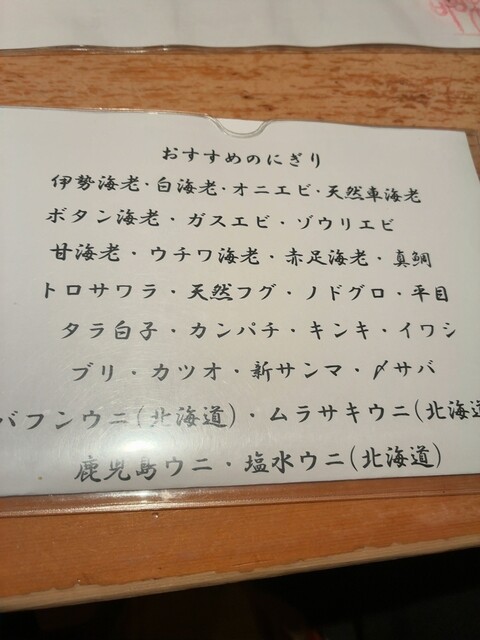 おすすめのにぎり
伊勢海老・白海老・オニエビ・天然車海老
ボタン海老・ガスエビ・ゾウリエビ
甘海老・ウチワ海老・赤足海老・真鯛
トロサワラ・天然フグ・ノドグロ・平目
タラ白子・カンパチ・キンキ・イワシ
ブリ・カツオ・新サンマ・〆サバ
バフンウニ(北海道)・ムラサキウニ(北海道
鹿児島ウニ・塩水ウニ(北海道)